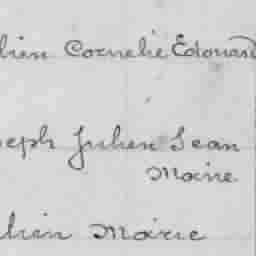 lien Cornelie Edouard
seph Julien Jean
Marie
lien Marie